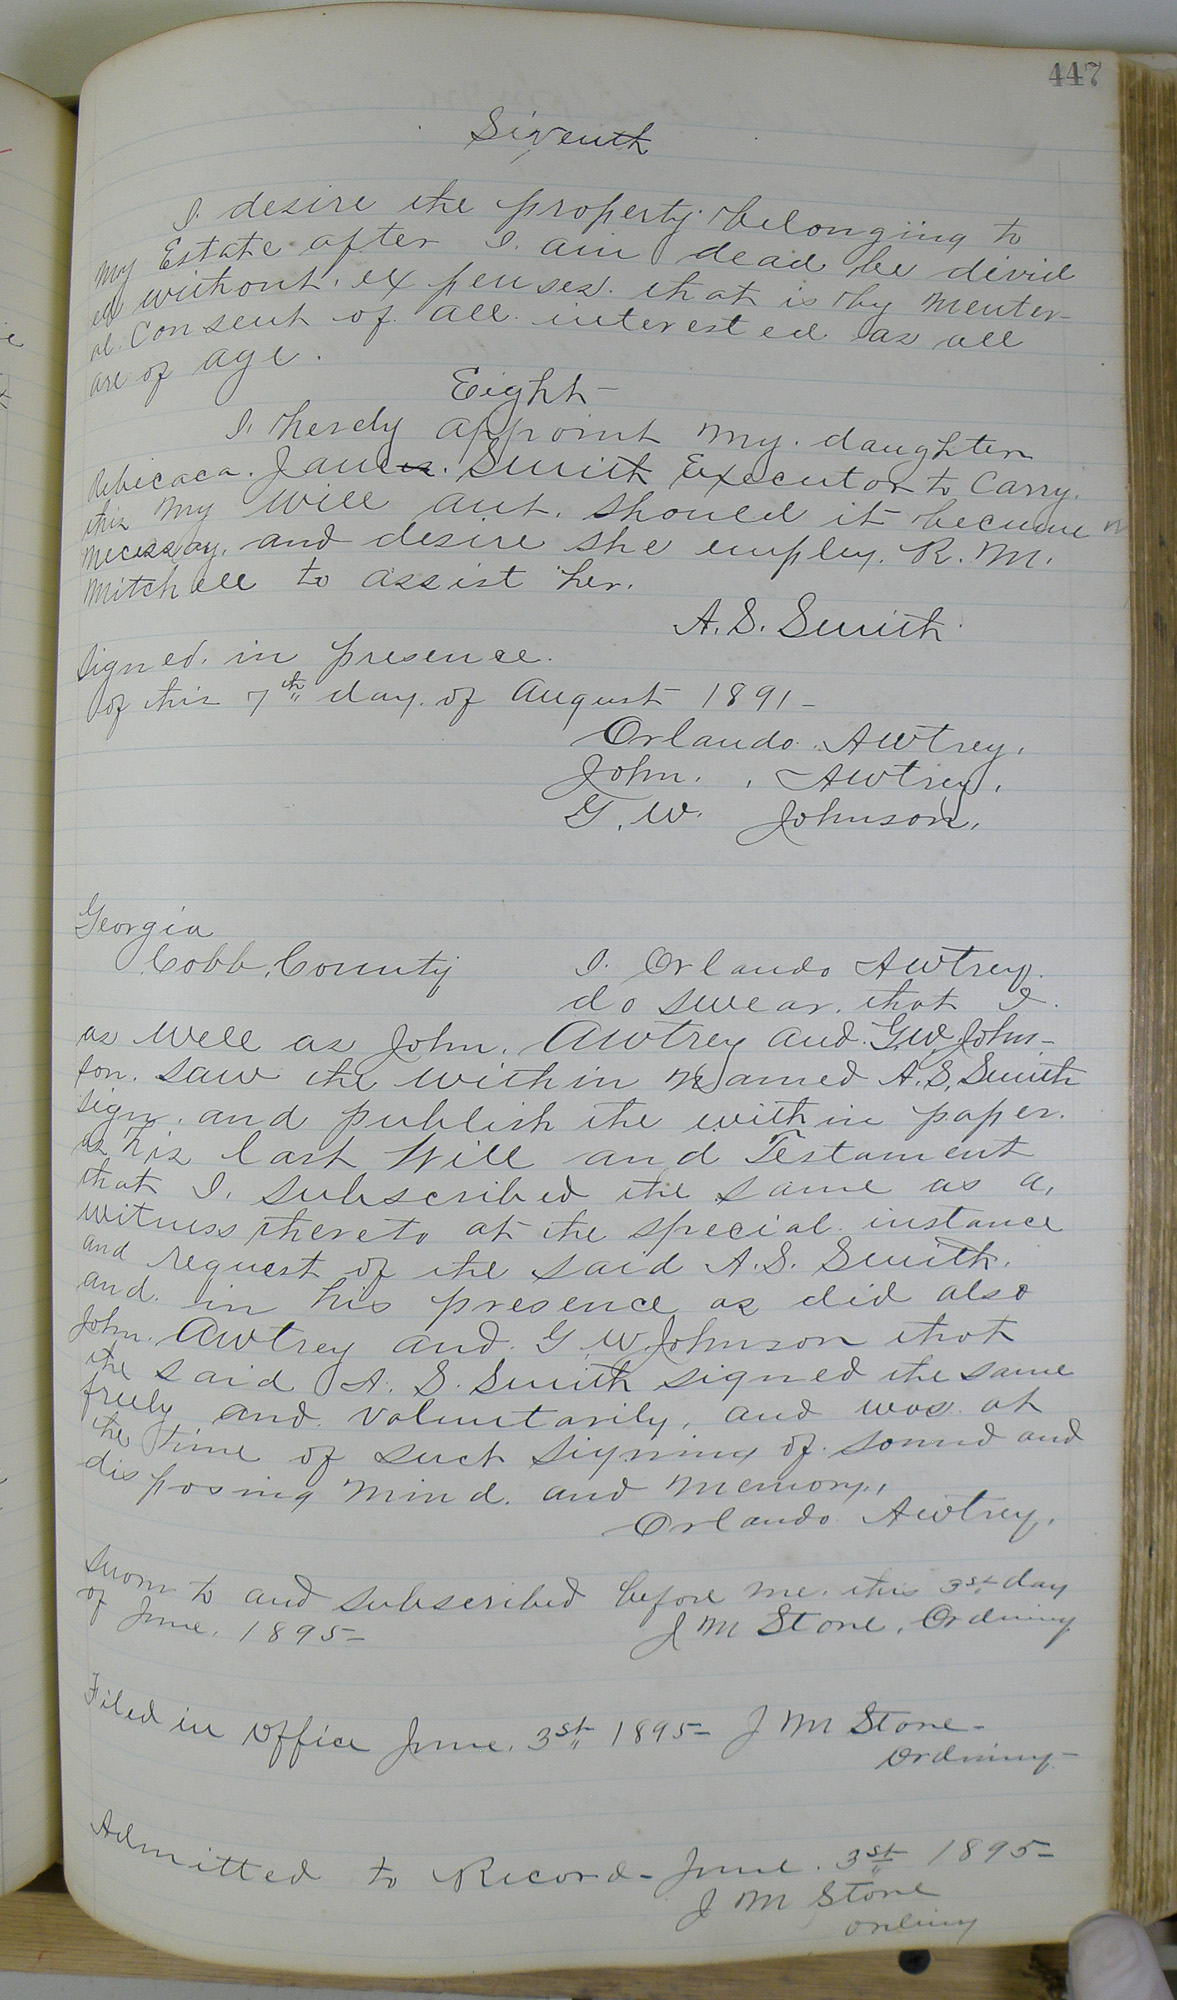 447
Siventh
I desire the property belonging to
My Estate after I am dead be divid
ed without expenses. that is by Menter-
al Consent of all interested as all
are of age.
Eight-
I, herely appoint my daughter
Rebicaca. Jane. Smith Executor to Carry.
this My Will aut. should it become
necessay, and desire she employ. R. M.
Mitchell to assist her.
A. S. Smith
Signed. in presence.
of this 7th day. of August 1891-
Orlando. Awtrey.
John. Awtrey.
G. W. Johnson.
Georgia
Cobb, County I. Orlando Awtrey.
do swear, that I.
as well as John. Awtrey and G.W. John-
son. saw the within Named A. S. Smith
sign. and publish the within paper.
as his last Will and Testament
that I, subscribed the same as a,
witness thereto at the special instance
and request of the said A. S. Smith.
and. in his presence as did also
John. Awtrey and. G W Johnson that
the said A. S. Smith signed the same
freely and. voluntarily, and was at
the time of such signing of sound and
disposing mind. and memory.
Orlando Awtrey.
Sworn to and subscribed before me. this 3st day
of June. 1895- J M Stone, Ordinny
Filed in Office June. 3st 1895- J M Stone-
Ordinny-
Admitted to Record- June. 3st 1895-
J M Stone